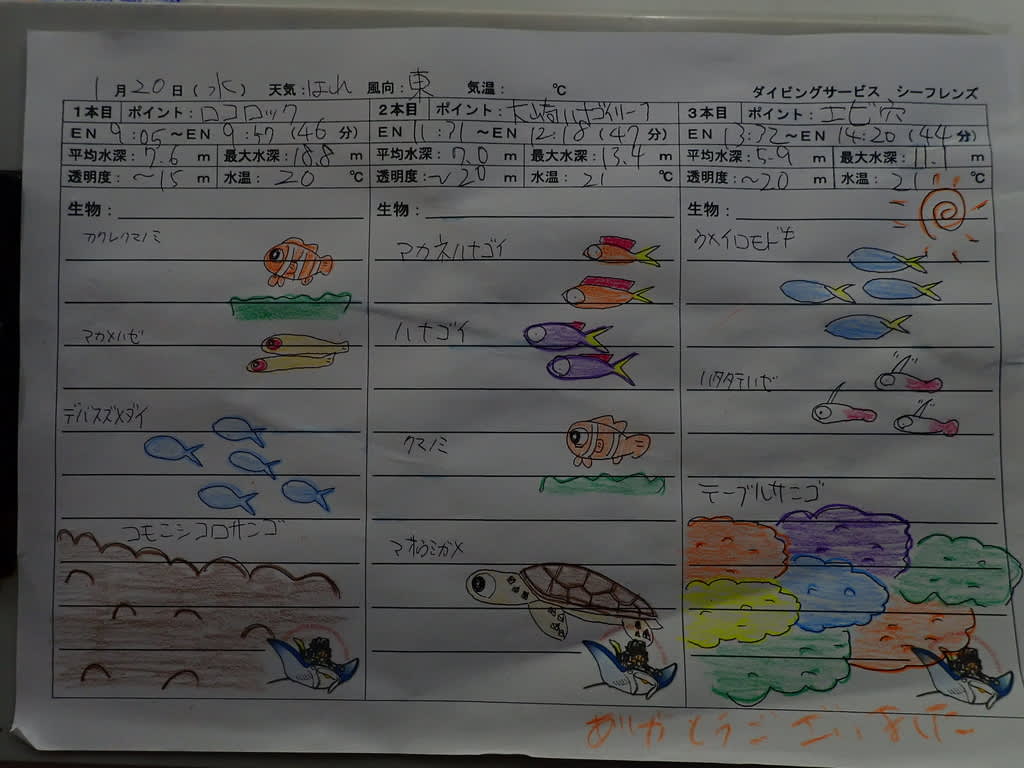 1月20日(水) 天気:はれ 風向:東 気温: ℃
ダイビングサービス シーフレンズ
1本目 ポイント:ロコロック
EN 9:05〜EN 9:57(46分)
平均水深:7.6m 最大水深:18.8m
透明度:〜15m 水温:20℃
生物:
カクレクマノミ
アカメハゼ
デバスズメダイ
コモンシコロサンゴ
2本目 ポイント:大崎ハナゴイリーフ
EN 11:31〜EN 12:18(47分)
平均水深:7.0m 最大水深:13.4m
透明度:〜20m 水温:21℃
生物:
アカネハナゴイ
ハナゴイ
クマノミ
アオウミガメ
3本目 ポイント:エビ穴
EN 13:32〜EN 14:20(44分)
平均水深:5.9m 最大水深:11.1m
透明度:〜20m 水温:21℃
生物:
ウメイロモドキ
ハタタテハゼ
テーブルサンゴ
ありがとうございました